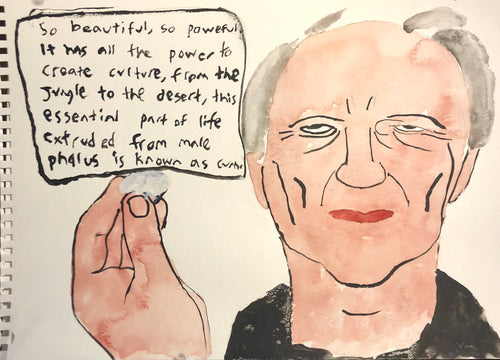 So beautiful, so powerful.
It has all the power to
create culture, from the
jungle to the desert, this
essential part of life
extruded from male
phalus is known as